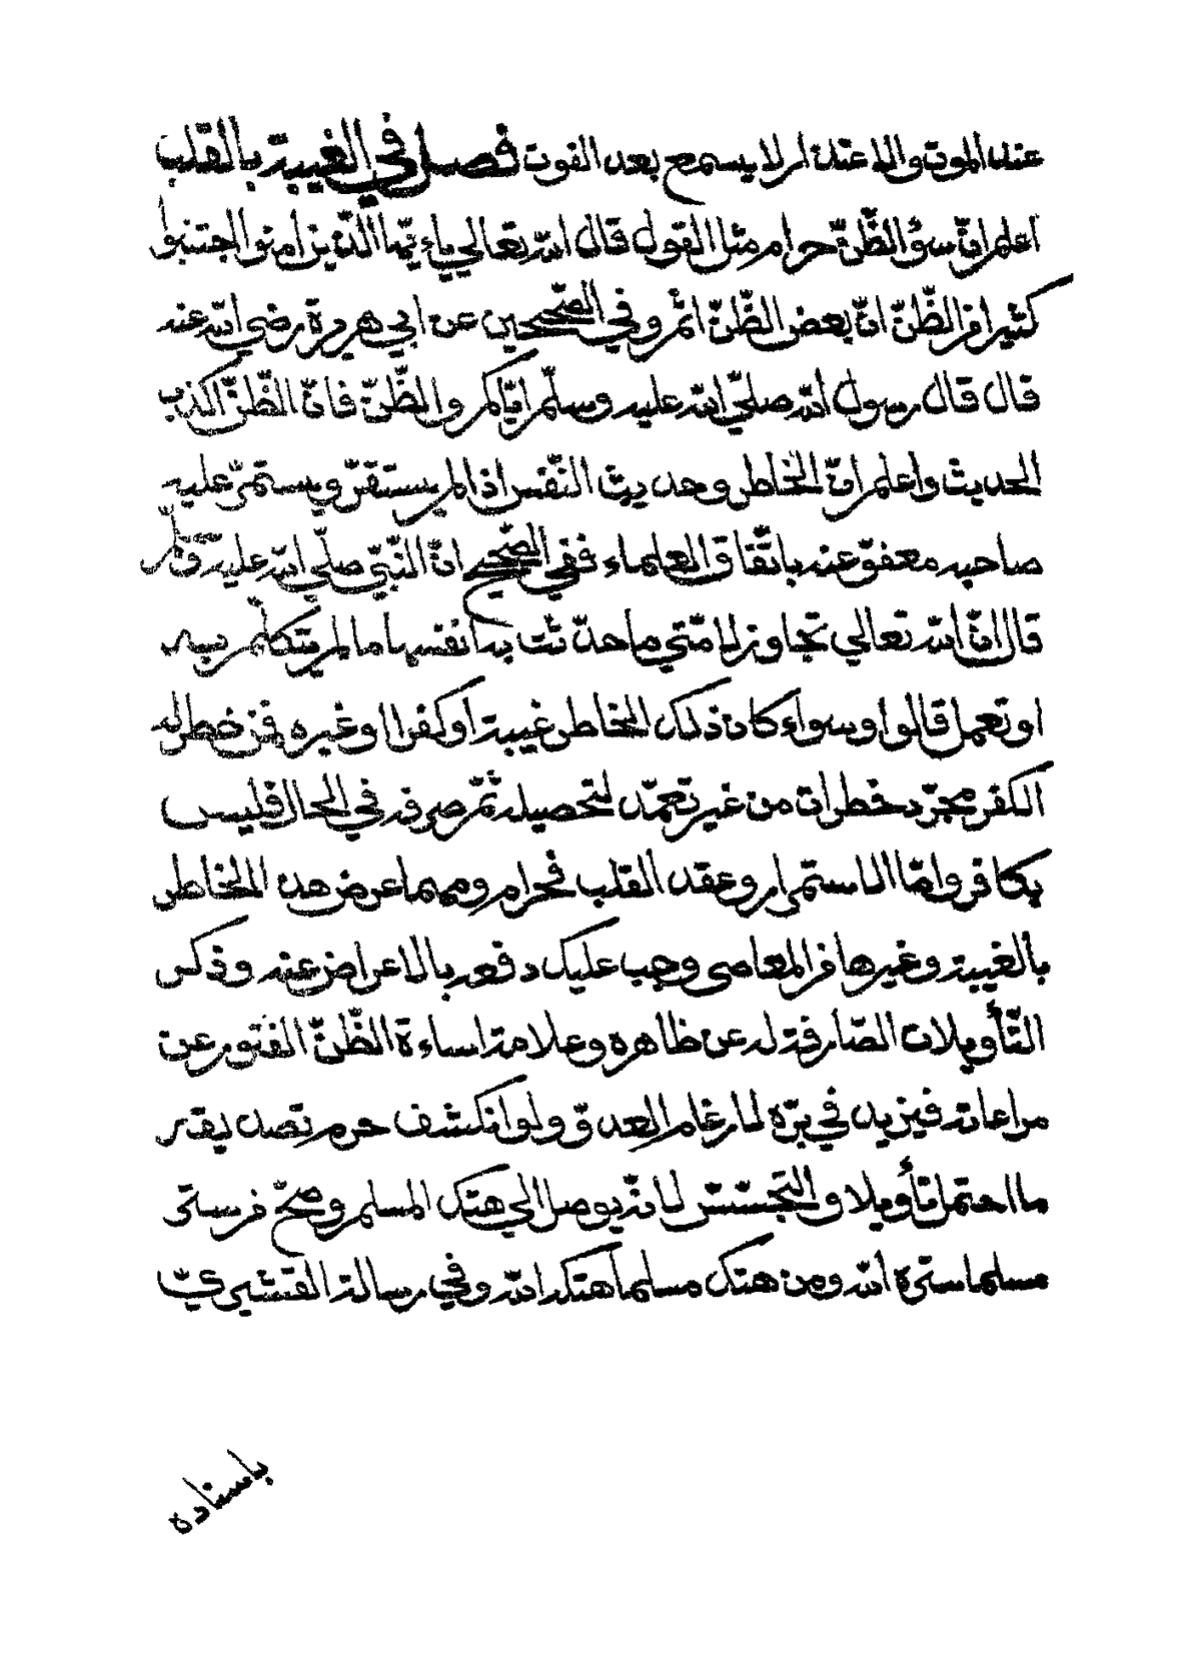 عند الموت والا عند امر لا يسمع بعد الفوت فصل في الغيبة بالقلب
اعلم انّ سوُ الظَّنّ حرام مثل القول قال الله تعالي ياءيّها الّذين امنوا اجتنبوا
كثيرا من الظّنّ انّ بعض الظّنّ اثم وفي الصّحيحين عن ابي هريرة رضي الله عنه
قال قال رسول الله صلّي الله عليه وسلّم ايّاكم والظّنّ فانّ الظّنّ اكذب
الحديث واعلم انّ الخاطر وحديث النّفس اذا لم يستقرّ ويستمرّ عليه
صاحبه معفوّ عنه باتّفاق العلماء ففي الصّحيح انّ النّبيّ صلّي الله عليه وسلّم
قال انّ الله تعالي تجاوز لامّتي ما حدّثت به انفسها ما لم يتكلّم به
او تعمل قالوا وسواء كان ذلك الخاطر غيبة او كفرا او غيره فمن خطر له
الكفر مجرّد خطران من غير تعمّد لتحصيله ثمّ صرفه في الحال فليس
بكافر وامّا الاستمرار وعقد القلب فحرام ومهما عرض هذا الخاطر
بالغيبة وغيرها من المعاصي وجب عليك دفعه بالاعراض عنه وذكر
التّأويلات الصّارفة له عن ظاهره وعلامة اساءة الظّنّ الفتور عن
مراعاته فيزيد في برّه لارغام العدوّ ولو انكشف حرم تصديقه
ما احتمل تأويلا والتجسّس لانّه يوصل الي هتك المسلم وصحّ من ستر
مسلما ستره الله ومن هتك مسلما هتكه الله وفي رسالة القشيريّ
باسناده